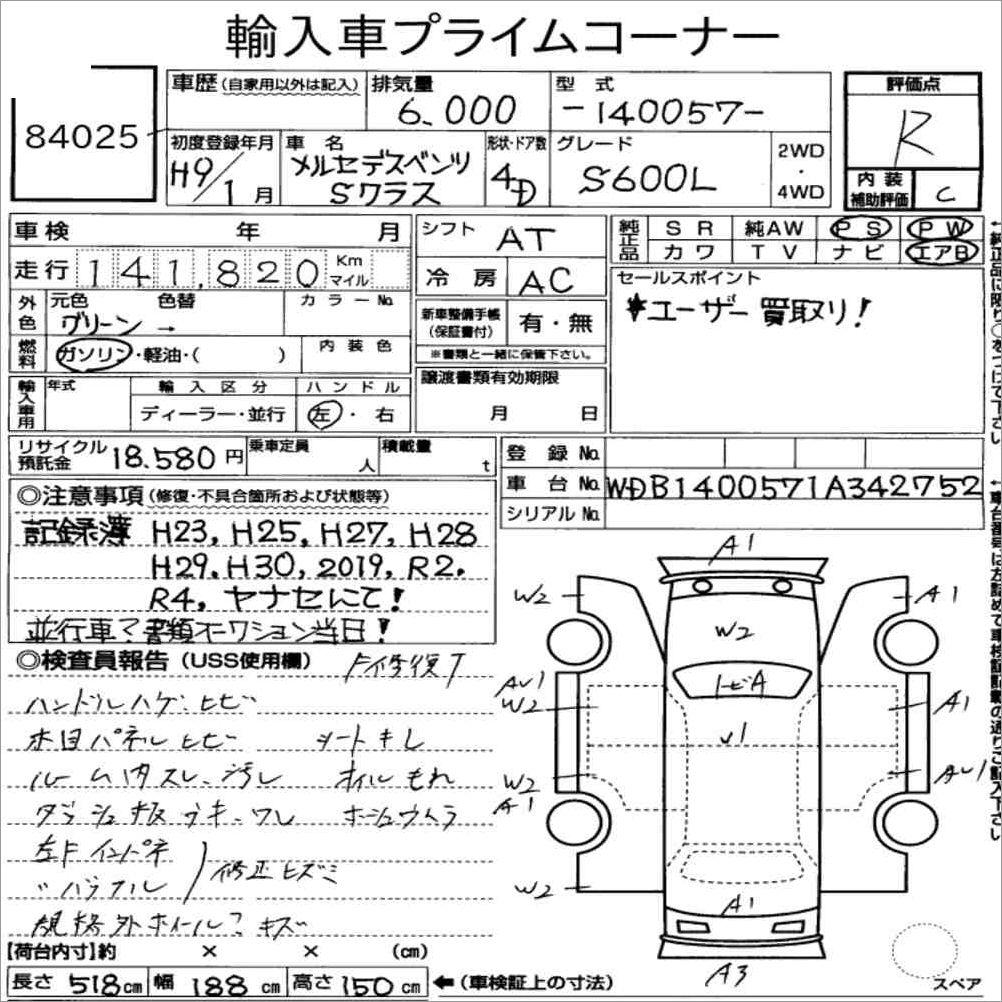 輸入車プライムコーナー
84025
車歴 (自家用以外は記入)
排気量 6.000
型式 -140057-
評価点 R
初度登録年月 H9/1月
車名 メルセデスベンツ Sクラス
形状・ドア数 4D
グレード S600L
2WD・4WD
内装補助評価 C
車検 年 月
シフト AT
純正品 SR 純AW PS PW
カワ TV ナビ エアB
走行 141,820 Km マイル
冷房 AC
セールスポイント
★ユーザー買取り!
外色 元色 グリーン → 色替 カラーNo.
新車整備手帳(保証書付) 有・無
※書類と一緒に保管下さい。
燃料 ガソリン・軽油・( ) 内装色
輸入車用 年式 輸入区分 ディーラー・並行 ハンドル 左・右
譲渡書類有効期限 月 日
リサイクル預託金 18.580円 乗車定員 人 積載量 t
登録No.
車台No. WDB1400571A342752
シリアルNo.
◎注意事項 (修復・不具合箇所および状態等)
記録簿 H23, H25, H27, H28
H29, H30, 2019, R2.
R4, ヤナセにて!
並行車? 書類オークション当日!
◎検査員報告 (USS使用欄)
ハンドルハゲ、ヒビ
木目パネルヒビ シートキレ
ルーム内スレ、汚し オイルもれ
ダッシュ板ウキ、ワレ
左Fインパネ
修正ヒズミ
規格外ホイール? キズ
A1
W2 A1
W2
トビA
W2 A1
U1
W2
A1
W2
A1
A3
スペア
【荷台内寸】約 × × (cm)
長さ 518cm 幅 188cm 高さ 150cm ←(車検証上の寸法)
←純正品に限り○をつけて下さい
←車台番号は左詰めで車検証記載の通りご記入下さい